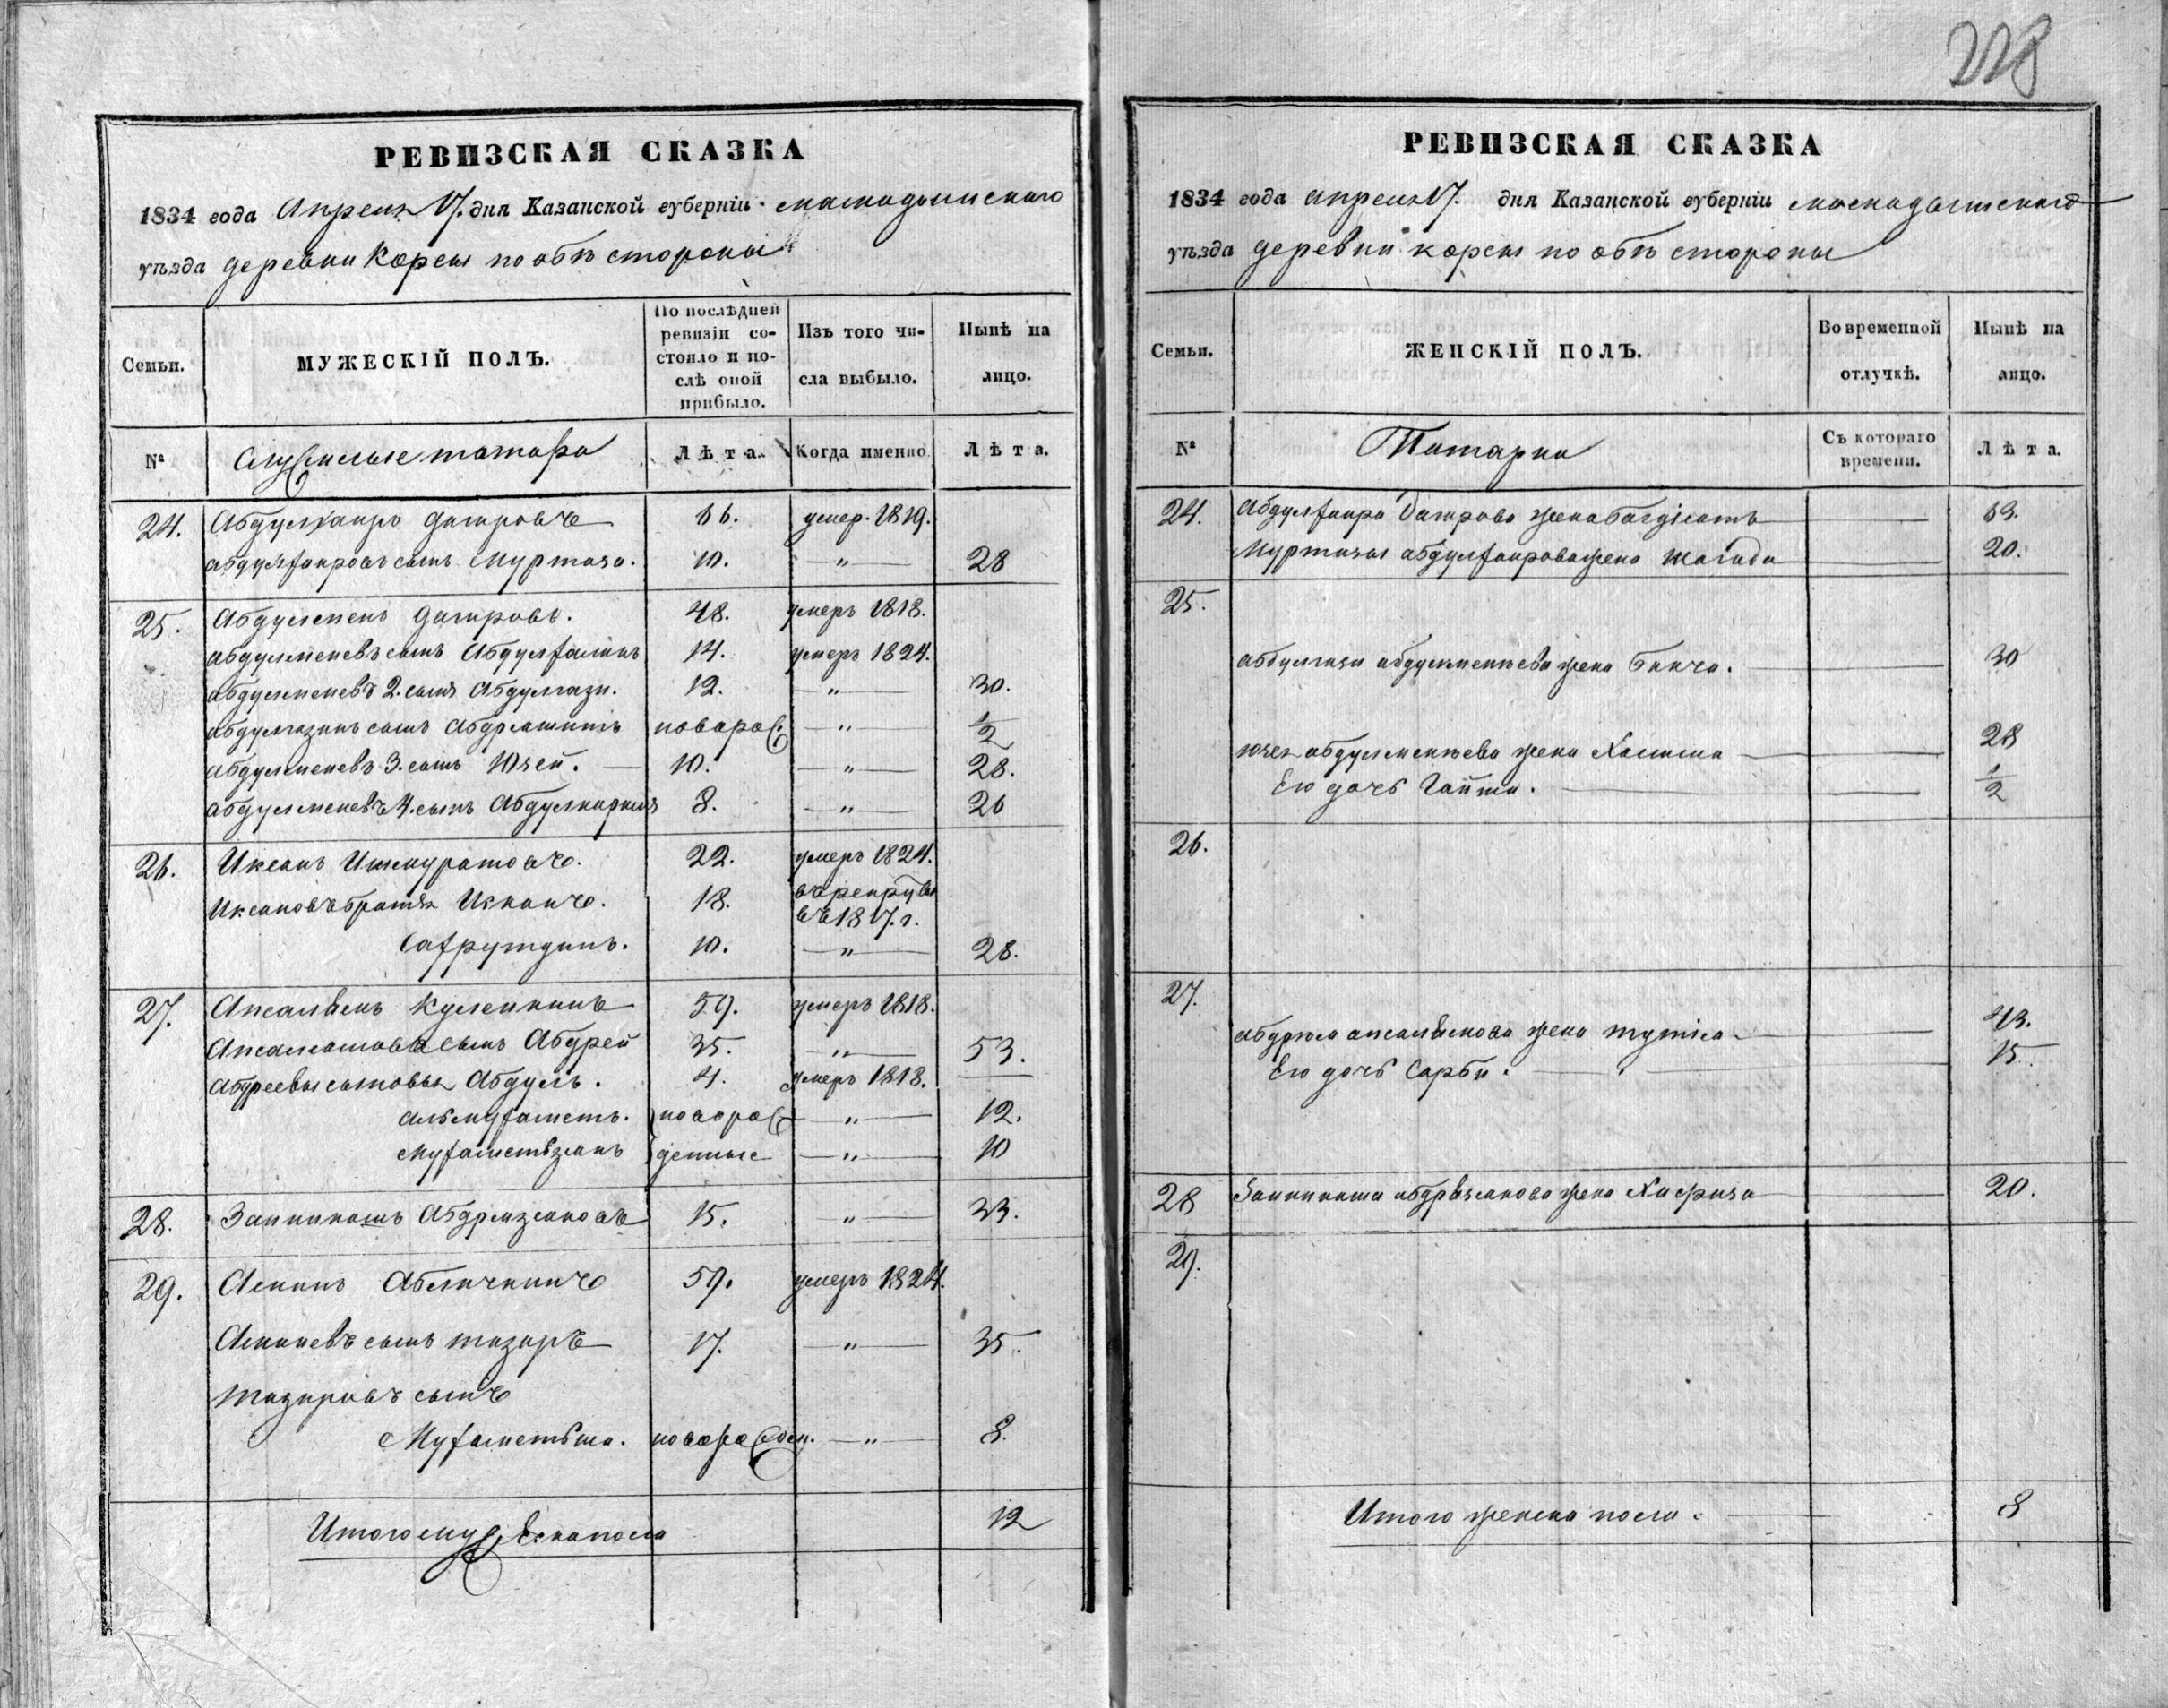 228
РЕВИЗСКАЯ СКАЗКА
1834 года Апреля 17. дня Казанской губерніи мамадышскаго
уѣзда деревни Корсы по обѣ стороны
Семьи.
МУЖЕСКІЙ ПОЛЪ.
По послѣдней ревизіи состояло и послѣ оной прибыло.
Изъ того числа выбыло.
Нынѣ на лицо.
№ служилые татара Лѣта. Когда именно. Лѣта.
24. Абдулхаиръ Даировъ 66. умер. 1819.
абдулхаировъ сынъ Муртаза. 10. — „ — 28
25. Абдулменъ Даировъ. 48. умеръ 1818.
абдулменевъ сынъ Абдулхаликъ 14. умеръ 1824.
абдулменевъ 2. сынъ Абдулгази. 12. — „ — 30.
абдулгазинъ сынъ Абдрашитъ новорож. — „ — 1/2
абдулменевъ 3. сынъ Юзей. 10. — „ — 28.
абдулменевъ 4. сынъ Абдулкаримъ 8. — „ — 26
26. Иксанъ Ишмуратовъ. 22. умеръ 1824.
Иксановъ братья 18. в рекруты
въ 1817. г.
Сафрутдинъ. 10. — „ — 28.
27. 59. умеръ 1818.
сынъ Абдрей 35. — „ — 53.
Абдреевы сыновья Абдулъ. 4. умеръ 1818.
альмухаметъ. новорож — „ — 12.
Мухаметзянъ денные — „ — 10
28. Абдрязяковъ 15. — „ — 33.
29. 59. умеръ 1824.
сынъ тазыръ 17. — „ — 35.
сынъ
Мухаметьша. новорожден. — „ — 8.
Итого мужеска пола 12
РЕВИЗСКАЯ СКАЗКА
1834 года апреля 17. дня Казанской губерніи мамадышскаго
уѣзда деревни корсы по обѣ стороны
Семьи.
ЖЕНСКІЙ ПОЛЪ.
Во временной отлучкѣ.
Нынѣ на лицо.
№ Татарки Съ котораго времени. Лѣта.
24. Абдулхаира Даирова жена 63.
Муртазы абдулхаирова жена Шагида 20.
25.
абдулгази абдулменева жена Бикча. 30
юзея абдулменева жена Халиша 28
Его дочь 1/2
26.
27.
жена 43.
Его дочь Сарби. 15
28 жена 20.
29.
Итого женска пола. 8